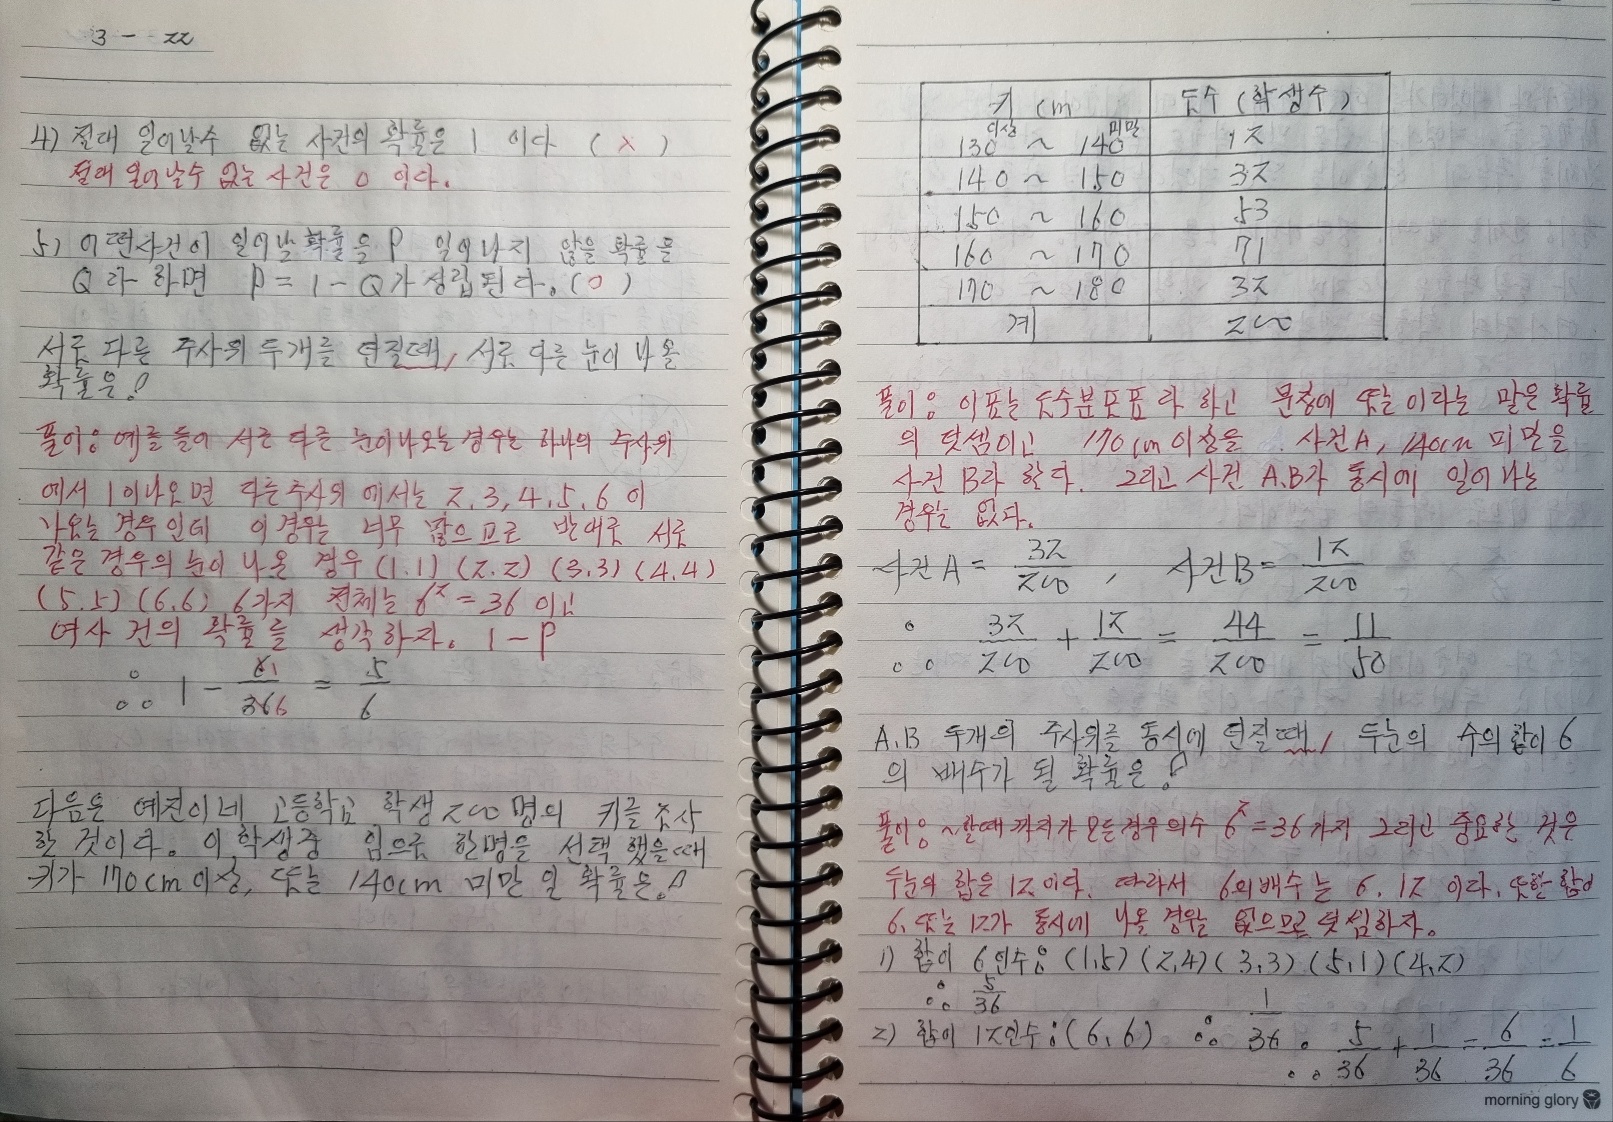 3 - 22
4) 절대 일어날수 없는 사건의 확률은 1 이다 ( × )
절대 일어날수 없는 사건은 0 이다.
5) 어떤사건이 일어날 확률을 P 일어나지 않을 확률을
Q 라 하면 P = 1 - Q가 성립된다. ( o )
서로 다른 주사위 두개를 던질때, 서로 다른 눈이 나올
확률은?
풀이: 예를 들어 서로 다른 눈이나오는 경우는 하나의 주사위
에서 1이나오면 다른주사위 에서는 2, 3, 4, 5, 6 이
나오는 경우인데 이경우는 너무 많으므로 반대로 서로
같은 경우의 눈이 나온 경우 (1.1) (2.2) (3,3) (4.4)
(5.5) (6.6) 6가지 전체는 6² = 36 이고
여사건의 확률을 생각하자. 1 - P
∴ 1 - 6̸1/36̸6 = 5/6
다음은 예진이네 고등학교 학생 200명의 키를 조사
한 것이다. 이 학생중 임으로 한명을 선택 했을때
키가 170cm 이상, 또는 140cm 미만 일 확률은?
키 cm 도수 (학생수)
130이상 ~ 140미만 12
140 ~ 150 32
150 ~ 160 53
160 ~ 170 71
170 ~ 180 32
계 200
풀이: 이표는 도수분포표 라 하고 문장에 또는 이라는 말은 확률
의 덧셈이고 170cm 이상을 사건A, 140cm 미만을
사건 B라 한다. 그리고 사건 A.B가 동시에 일어나는
경우는 없다.
사건A = 32/200 , 사건B = 12/200
∴ 32/200 + 12/200 = 44/200 = 11/50
A.B 두개의 주사위를 동시에 던질때, 두눈의 수의 합이 6
의 배수가 될 확률은?
풀이: ~할때 까지가 모든경우의수 6² = 36가지 그리고 중요한 것은
두눈의 합은 12이다. 따라서 6의배수는 6, 12 이다. 또한 합이
6, 또는 12가 동시에 나올 경우는 없으므로 덧셈하자.
1) 합이 6인수: (1,5) (2,4) (3,3) (5,1) (4,2)
∴ 5/36
2) 합이 12인수: (6,6) ∴ 1/36 ∴ 5/36 + 1/36 = 6/36 = 1/6
morning glory